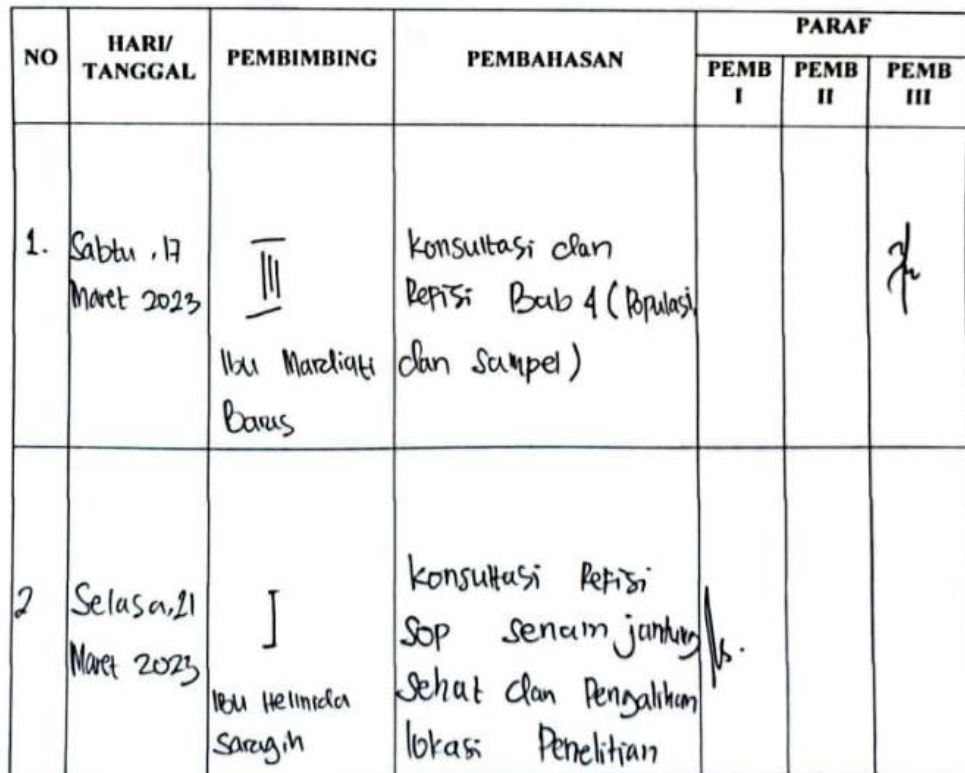 NO HARI/ TANGGAL PEMBIMBING PEMBAHASAN PARAF
PEMB I PEMB II PEMB III
1. Sabtu, 17 Maret 2023
III
Ibu Mardiati Barus
Konsultasi dan
Refisi Bab 4 (Populasi
dan Sampel)
2 Selasa, 21 Maret 2023
I
Ibu Helinida Saragih
Konsultasi Refisi
Sop senam jantung
Sehat dan Pengalihan
lokasi Penelitian